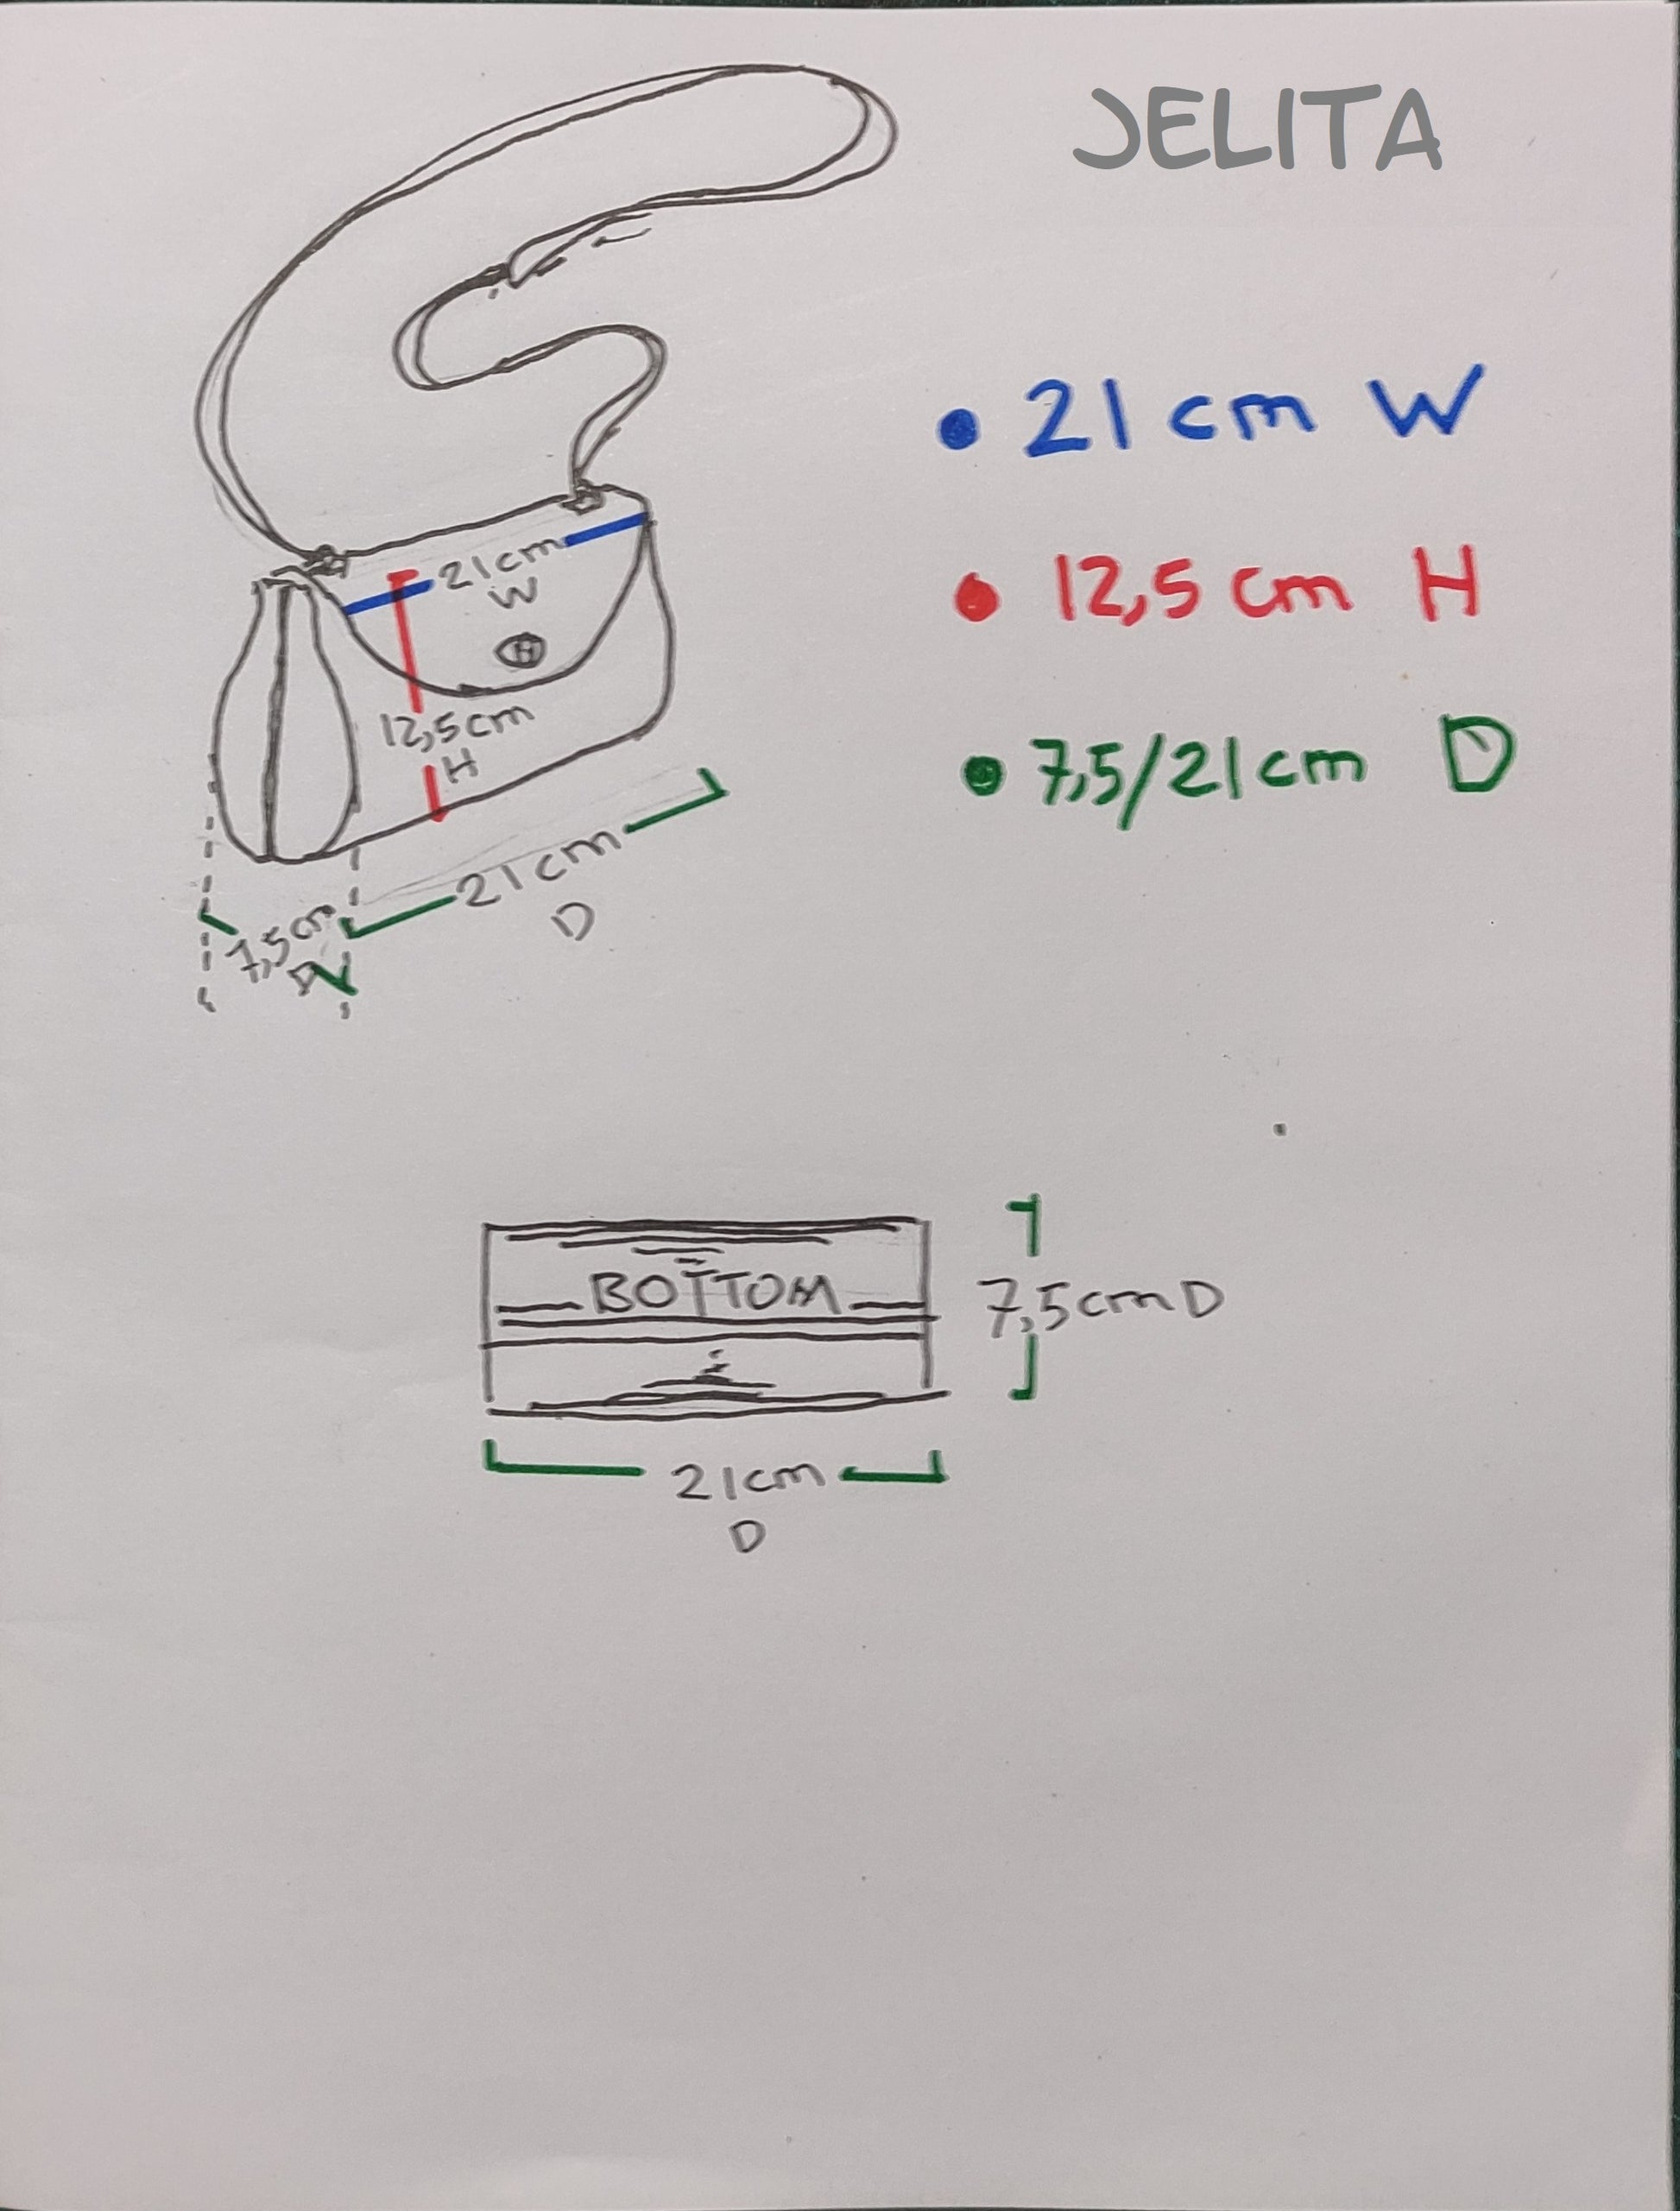 JELITA
21 cm W
12,5 cm H
7,5/21 cm D
21cm
W
H
12,5cm
H
21cm
D
7,5cm
D
BOTTOM
7,5cm D
21cm
D